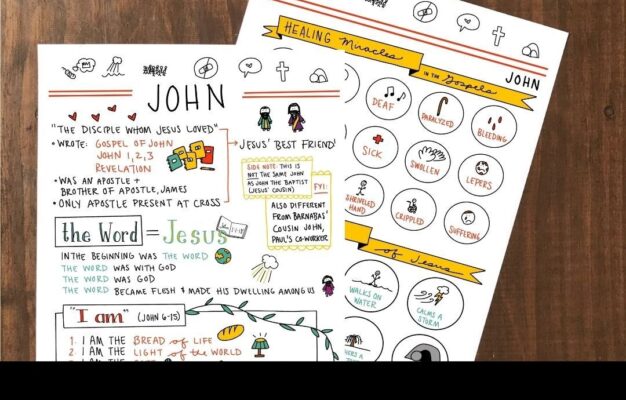 JOHN
"THE DISCIPLE WHOM JESUS LOVED"
• WROTE: GOSPEL OF JOHN
JOHN 1, 2, 3
REVELATION
• WAS AN APOSTLE +
BROTHER OF APOSTLE, JAMES
• ONLY APOSTLE PRESENT AT CROSS
JESUS' BEST FRIEND!
SIDE NOTE: THIS IS
NOT THE SAME JOHN
AS JOHN THE BAPTIST
(JESUS' COUSIN)
FYI:
ALSO DIFFERENT
FROM BARNABAS'
COUSIN JOHN,
PAUL'S CO-WORKER
the Word = Jesus
IN THE BEGINNING WAS THE WORD
THE WORD WAS WITH GOD
THE WORD WAS GOD
THE WORD BECAME FLESH & MADE HIS DWELLING AMONG US
"I am" (JOHN 6-15)
1. I AM THE BREAD of LIFE
2. I AM THE LIGHT of the WORLD
3. I AM THE
HEALING Miracles
IN THE Gospels
JOHN
DEAF
PARALYZED
BLEEDING
SICK
SWOLLEN
LEPERS
SHRIVELED
HAND
CRIPPLED
SUFFERING
of Jesus
WALKS ON
WATER
CALMS A
STORM